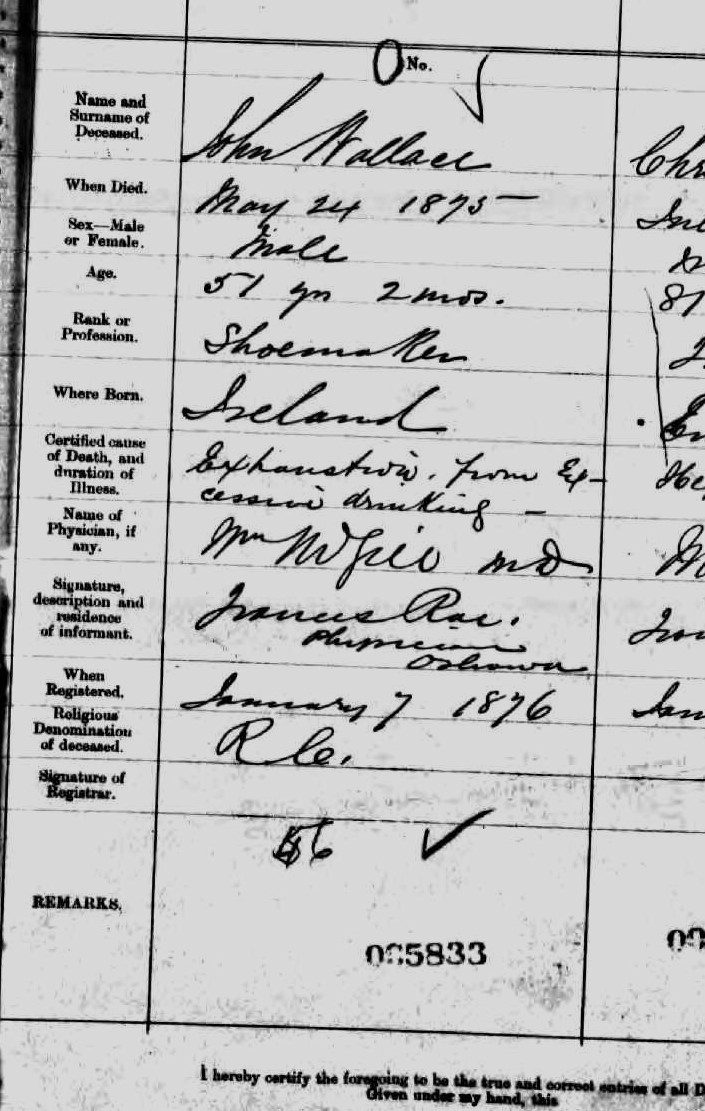 No.
Name and
Surname of
Deceased.
John Wallace
Chr
When Died.
May 24 1875 —
Sex—Male
or Female.
Male
Age.
51 yrs 2 mos.
81
Rank or
Profession.
Shoemaker
Where Born.
Ireland
En
Certified cause
of Death, and
duration of
Illness.
Exhaustion. from Ex-
cessive drinking —
Name of
Physician, if
any.
Wm McGill MD
Signature,
description and
residence
of informant.
Francis Rae.
Physician
Oshawa
When
Registered.
January 7 1876
Jan
Religious
Denomination
of deceased.
R C.
Signature of
Registrar.
REMARKS.
005833
I hereby certify the foregoing to be the true and correct entries of all D
Given under my hand, this